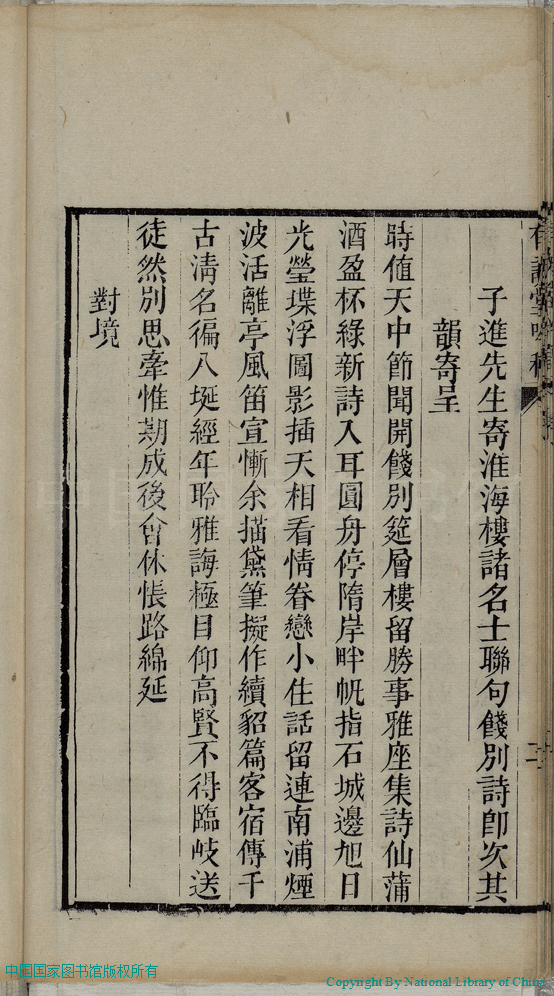 子進先生寄淮海樓諸名士聯句餞別詩即次其
韻寄呈
時值天中節聞開餞別筵層樓留勝事雅座集詩仙蒲
酒盈杯綠新詩入耳圓舟停隋岸畔帆指石城邊旭日
光瑩堞浮圖影插天相看情眷戀小住話留連南浦煙
波活離亭風笛宣慚余描黛筆擬作續貂篇客宿傳千
古清名徧八埏經年聆雅誨極目仰高賢不得臨岐送
徒然別思牽惟期成後會休悵路綿延
對境
中国国家图书馆版权所有
Copyright By National Library of China